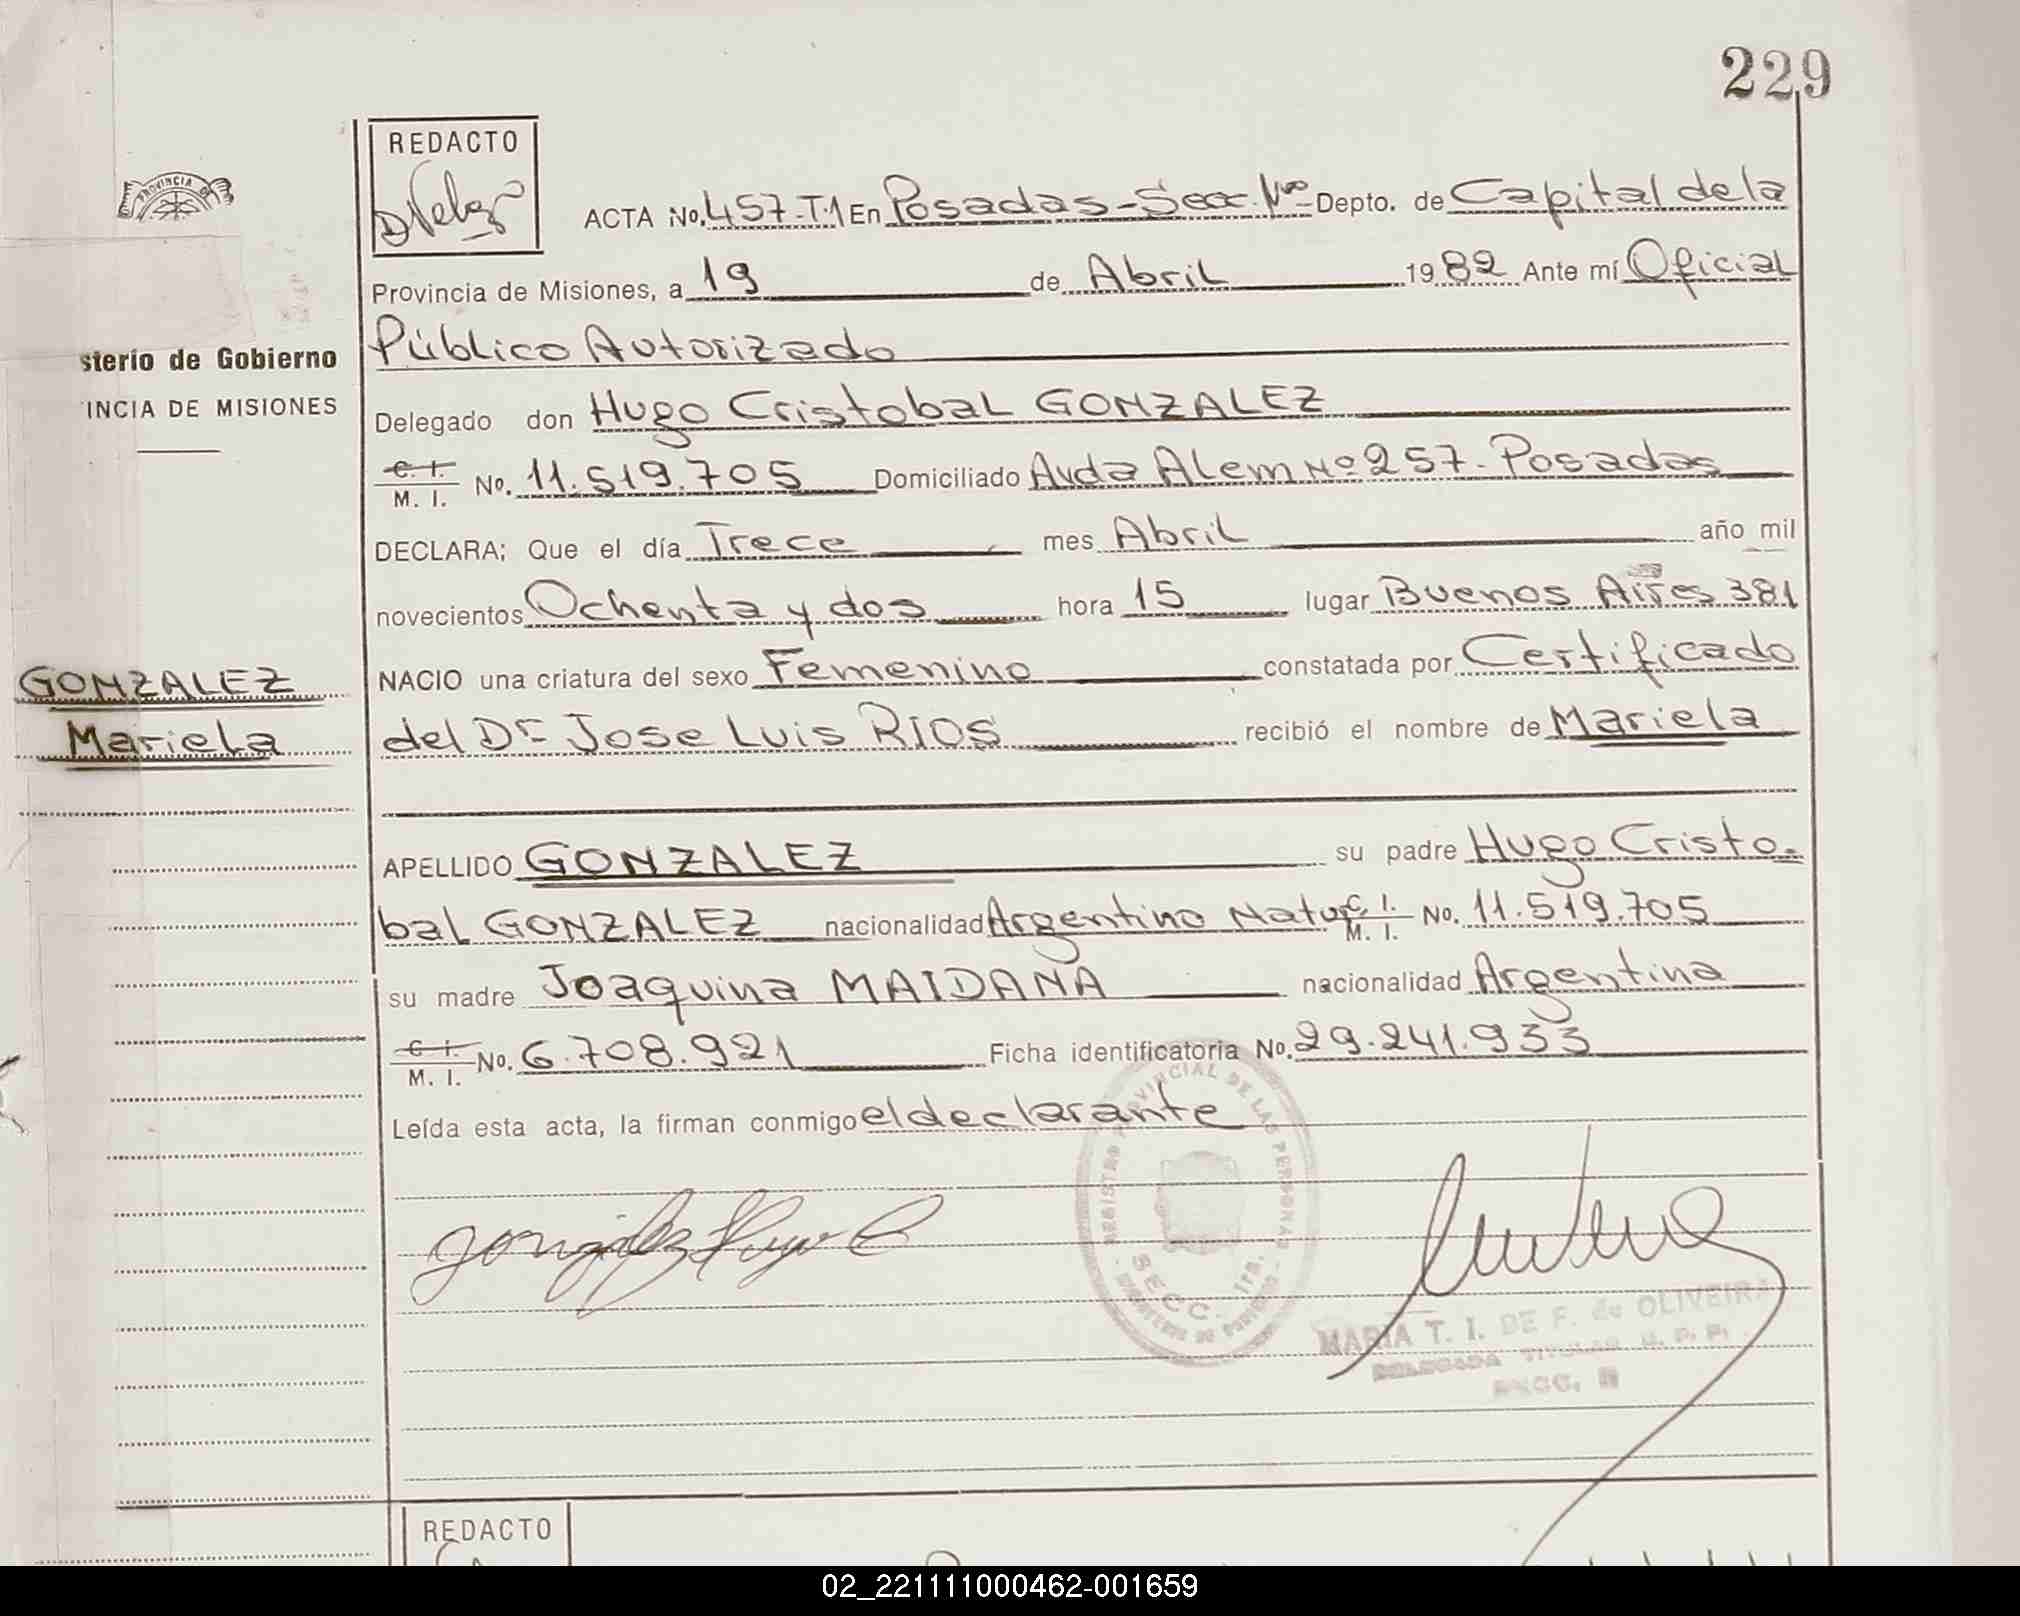 229
REDACTO
PROVINCIA DE
ACTA No. 457-T.1 En Posadas-Secc. 1ra- Depto. de Capital de la
Provincia de Misiones, a 19 de Abril 1982 Ante mí Oficial
Público Autorizado
sterio de Gobierno
INCIA DE MISIONES
Delegado don Hugo Cristobal GONZALEZ
C. I. M. I. No. 11.519.705 Domiciliado Avda Alem No 257- Posadas
DECLARA; Que el día Trece mes Abril año mil
novecientos Ochenta y dos hora 15 lugar Buenos Aires 381
NACIO una criatura del sexo Femenino constatada por Certificado
GONZALEZ
Mariela
del Dr Jose Luis RIOS recibió el nombre de Mariela
APELLIDO GONZALEZ su padre Hugo Cristo-
bal GONZALEZ nacionalidad Argentino Natur C. I. M. I. No. 11.519.705
su madre Joaquina MAIDANA nacionalidad Argentina
C. I. M. I. No. 6.708.921 Ficha identificatoria No. 29.241.933
Leída esta acta, la firman conmigo el declarante
REGISTRO PROVINCIAL DE LAS PERSONAS
SECC. 1ra.
Gonzalez Hugo C
MARIA T. I. DE F. de OLIVEIRA
DELEGADA TITULAR R. P. P.
SECC.
REDACTO
02_221111000462-001659